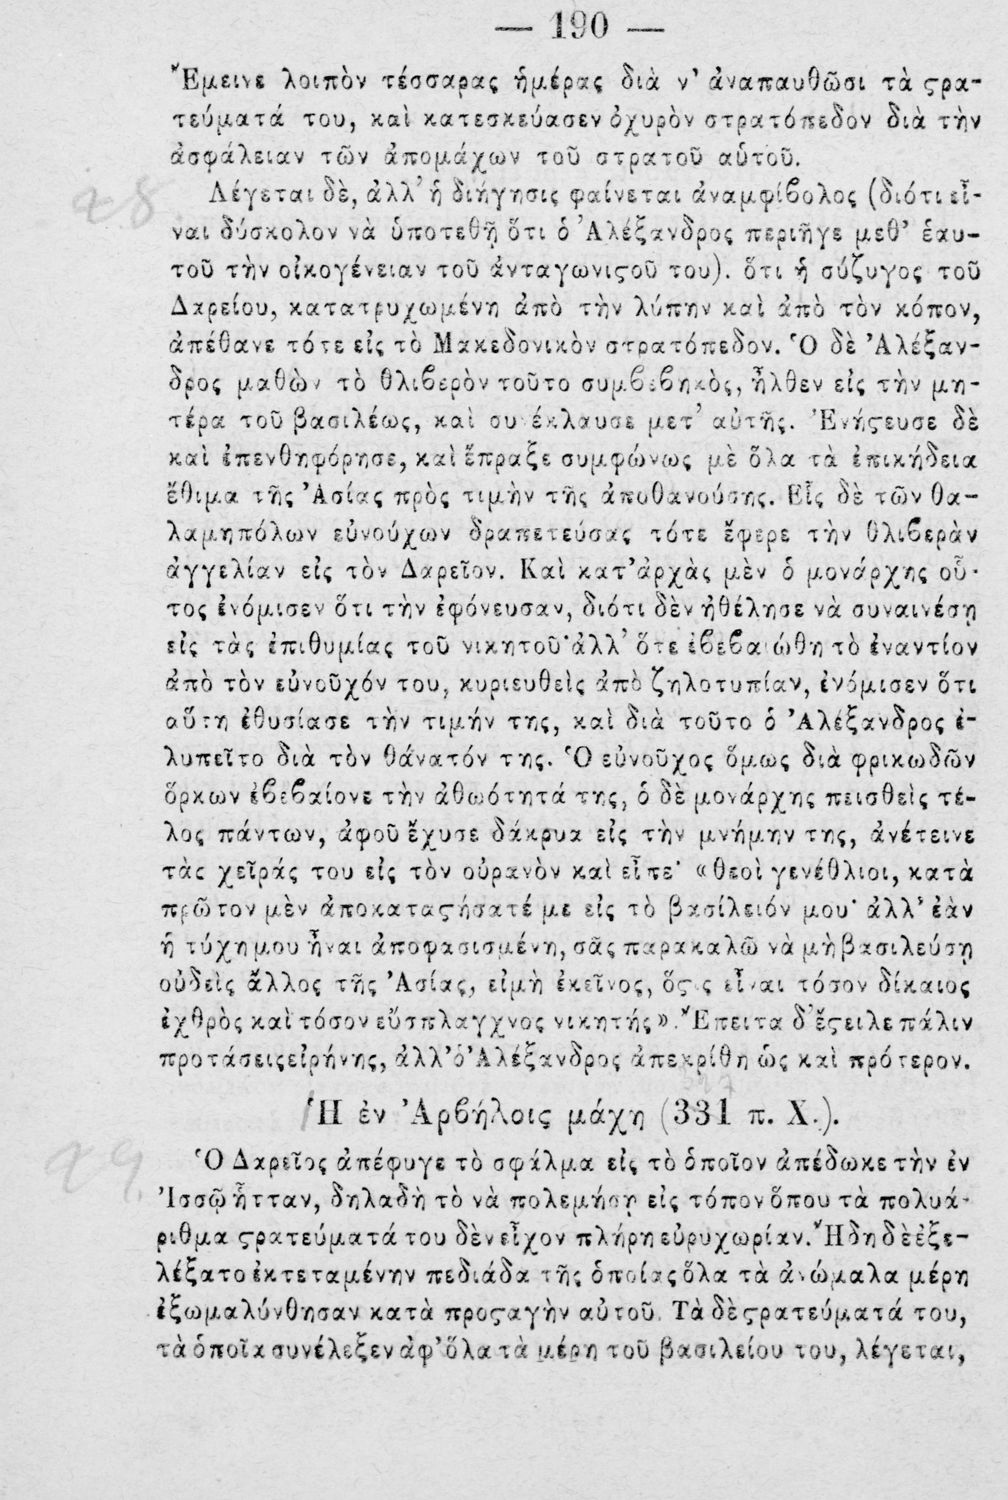 — 190 —
Ἔμεινε λοιπὸν τέσσαρας ἡμέρας διὰ ν' ἀναπαυθῶσι τὰ ϛρα-
τεύματά του, καὶ κατεσκεύασεν ὀχυρὸν στρατόπεδον διὰ τὴν
ἀσφάλειαν τῶν ἀπομάχων τοῦ στρατοῦ αὑτοῦ.
28
Λέγεται δὲ, ἀλλ' ἡ διήγησις φαίνεται ἀναμφίβολος (διότι εἶ-
ναι δύσκολον νὰ ὑποτεθῇ ὅτι ὁ Ἀλέξανδρος περιῆγε μεθ' ἑαυ-
τοῦ τὴν οἰκογένειαν τοῦ ἀνταγωνιϛοῦ του). ὅτι ἡ σύζυγος τοῦ
Δαρείου, κατατρυχωμένη ἀπὸ τὴν λύπην καὶ ἀπὸ τὸν κόπον,
ἀπέθανε τότε εἰς τὸ Μακεδονικὸν στρατόπεδον. Ὁ δὲ Ἀλέξαν-
δρος μαθὼν τὸ θλιβερὸν τοῦτο συμβεβηκὸς, ἦλθεν εἰς τὴν μη-
τέρα τοῦ βασιλέως, καὶ συνέκλαυσε μετ' αὐτῆς. Ἐνήϛευσε δὲ
καὶ ἐπενθηφόρησε, καὶ ἔπραξε συμφώνως μὲ ὅλα τὰ ἐπικήδεια
ἔθιμα τῆς Ἀσίας πρὸς τιμὴν τῆς ἀποθανούσης. Εἷς δὲ τῶν θα-
λαμηπόλων εὐνούχων δραπετεύσας τότε ἔφερε τὴν θλιβερὰν
ἀγγελίαν εἰς τὸν Δαρεῖον. Καὶ κατ' ἀρχὰς μὲν ὁ μονάρχης οὗ-
τος ἐνόμισεν ὅτι τὴν ἐφόνευσαν, διότι δὲν ἠθέλησε νὰ συναινέσῃ
εἰς τὰς ἐπιθυμίας τοῦ νικητοῦ· ἀλλ' ὅτε ἐβεβαιώθη τὸ ἐναντίον
ἀπὸ τὸν εὐνοῦχόν του, κυριευθεὶς ἀπὸ ζηλοτυπίαν, ἐνόμισεν ὅτι
αὕτη ἐθυσίασε τὴν τιμήν της, καὶ διὰ τοῦτο ὁ Ἀλέξανδρος ἐ-
λυπεῖτο διὰ τὸν θάνατόν της. Ὁ εὐνοῦχος ὅμως διὰ φρικωδῶν
ὅρκων ἐβεβαίονε τὴν ἀθωότητά της, ὁ δὲ μονάρχης πεισθεὶς τέ-
λος πάντων, ἀφοῦ ἔχυσε δάκρυα εἰς τὴν μνήμην της, ἀνέτεινε
τὰς χεῖράς του εἰς τὸν οὐρανὸν καὶ εἶπε· «θεοὶ γενέθλιοι, κατὰ
πρῶτον μὲν ἀποκαταϛήσατέ με εἰς τὸ βασίλειόν μου· ἀλλ' ἐὰν
ἡ τύχη μου ἦναι ἀποφασισμένη, σᾶς παρακαλῶ νὰ μὴ βασιλεύσῃ
οὐδεὶς ἄλλος τῆς Ἀσίας, εἰμὴ ἐκεῖνος, ὅϛις εἶναι τόσον δίκαιος
ἐχθρὸς καὶ τόσον εὔσπλαγχνος νικητής». Ἔπειτα δ' ἔϛειλε πάλιν
προτάσεις εἰρήνης, ἀλλ' ὁ Ἀλέξανδρος ἀπεκρίθη ὡς καὶ πρότερον.
Ἡ ἐν Ἀρβήλοις μάχη (331 π. Χ.).
29
Ὁ Δαρεῖος ἀπέφυγε τὸ σφάλμα εἰς τὸ ὁποῖον ἀπέδωκε τὴν ἐν
Ἰσσῷ ἧτταν, δηλαδὴ τὸ νὰ πολεμήσῃ εἰς τόπον ὅπου τὰ πολυά-
ριθμα ϛρατεύματά του δὲν εἶχον πλήρη εὐρυχωρίαν. Ἤδη δὲ ἐξε-
λέξατο ἐκτεταμένην πεδιάδα τῆς ὁποίας ὅλα τὰ ἀνώμαλα μέρη
ἐξωμαλύνθησαν κατὰ προϛαγὴν αὐτοῦ. Τὰ δὲ ϛρατεύματά του,
τὰ ὁποῖα συνέλεξεν ἀφ' ὅλα τὰ μέρη τοῦ βασιλείου του, λέγεται,